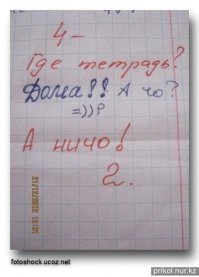 4-
Где тетрадь?
Дома!! А чо?
=))?
А ничо!
2.
fotoshock.ucoz.net
prikol.nur.kz